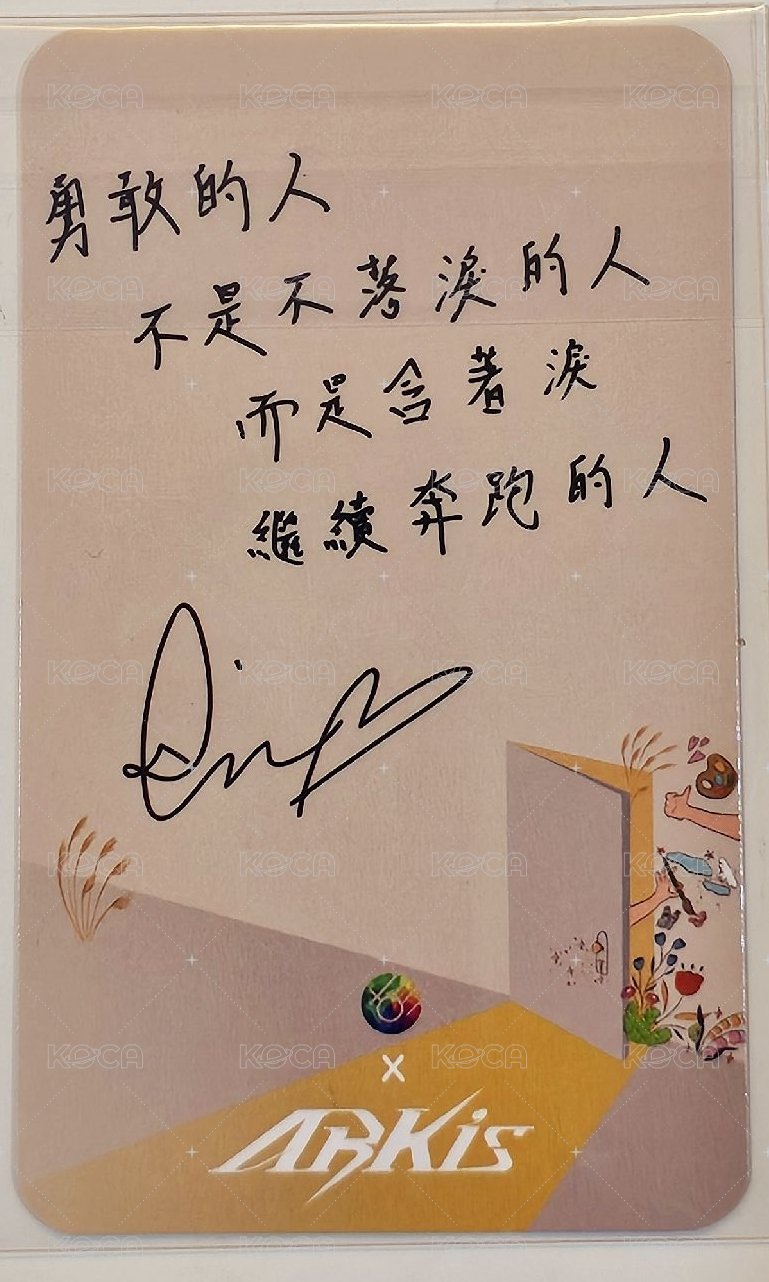 勇敢的人
不是不落淚的人
而是含著淚
繼續奔跑的人
x
ARKis
KOCA